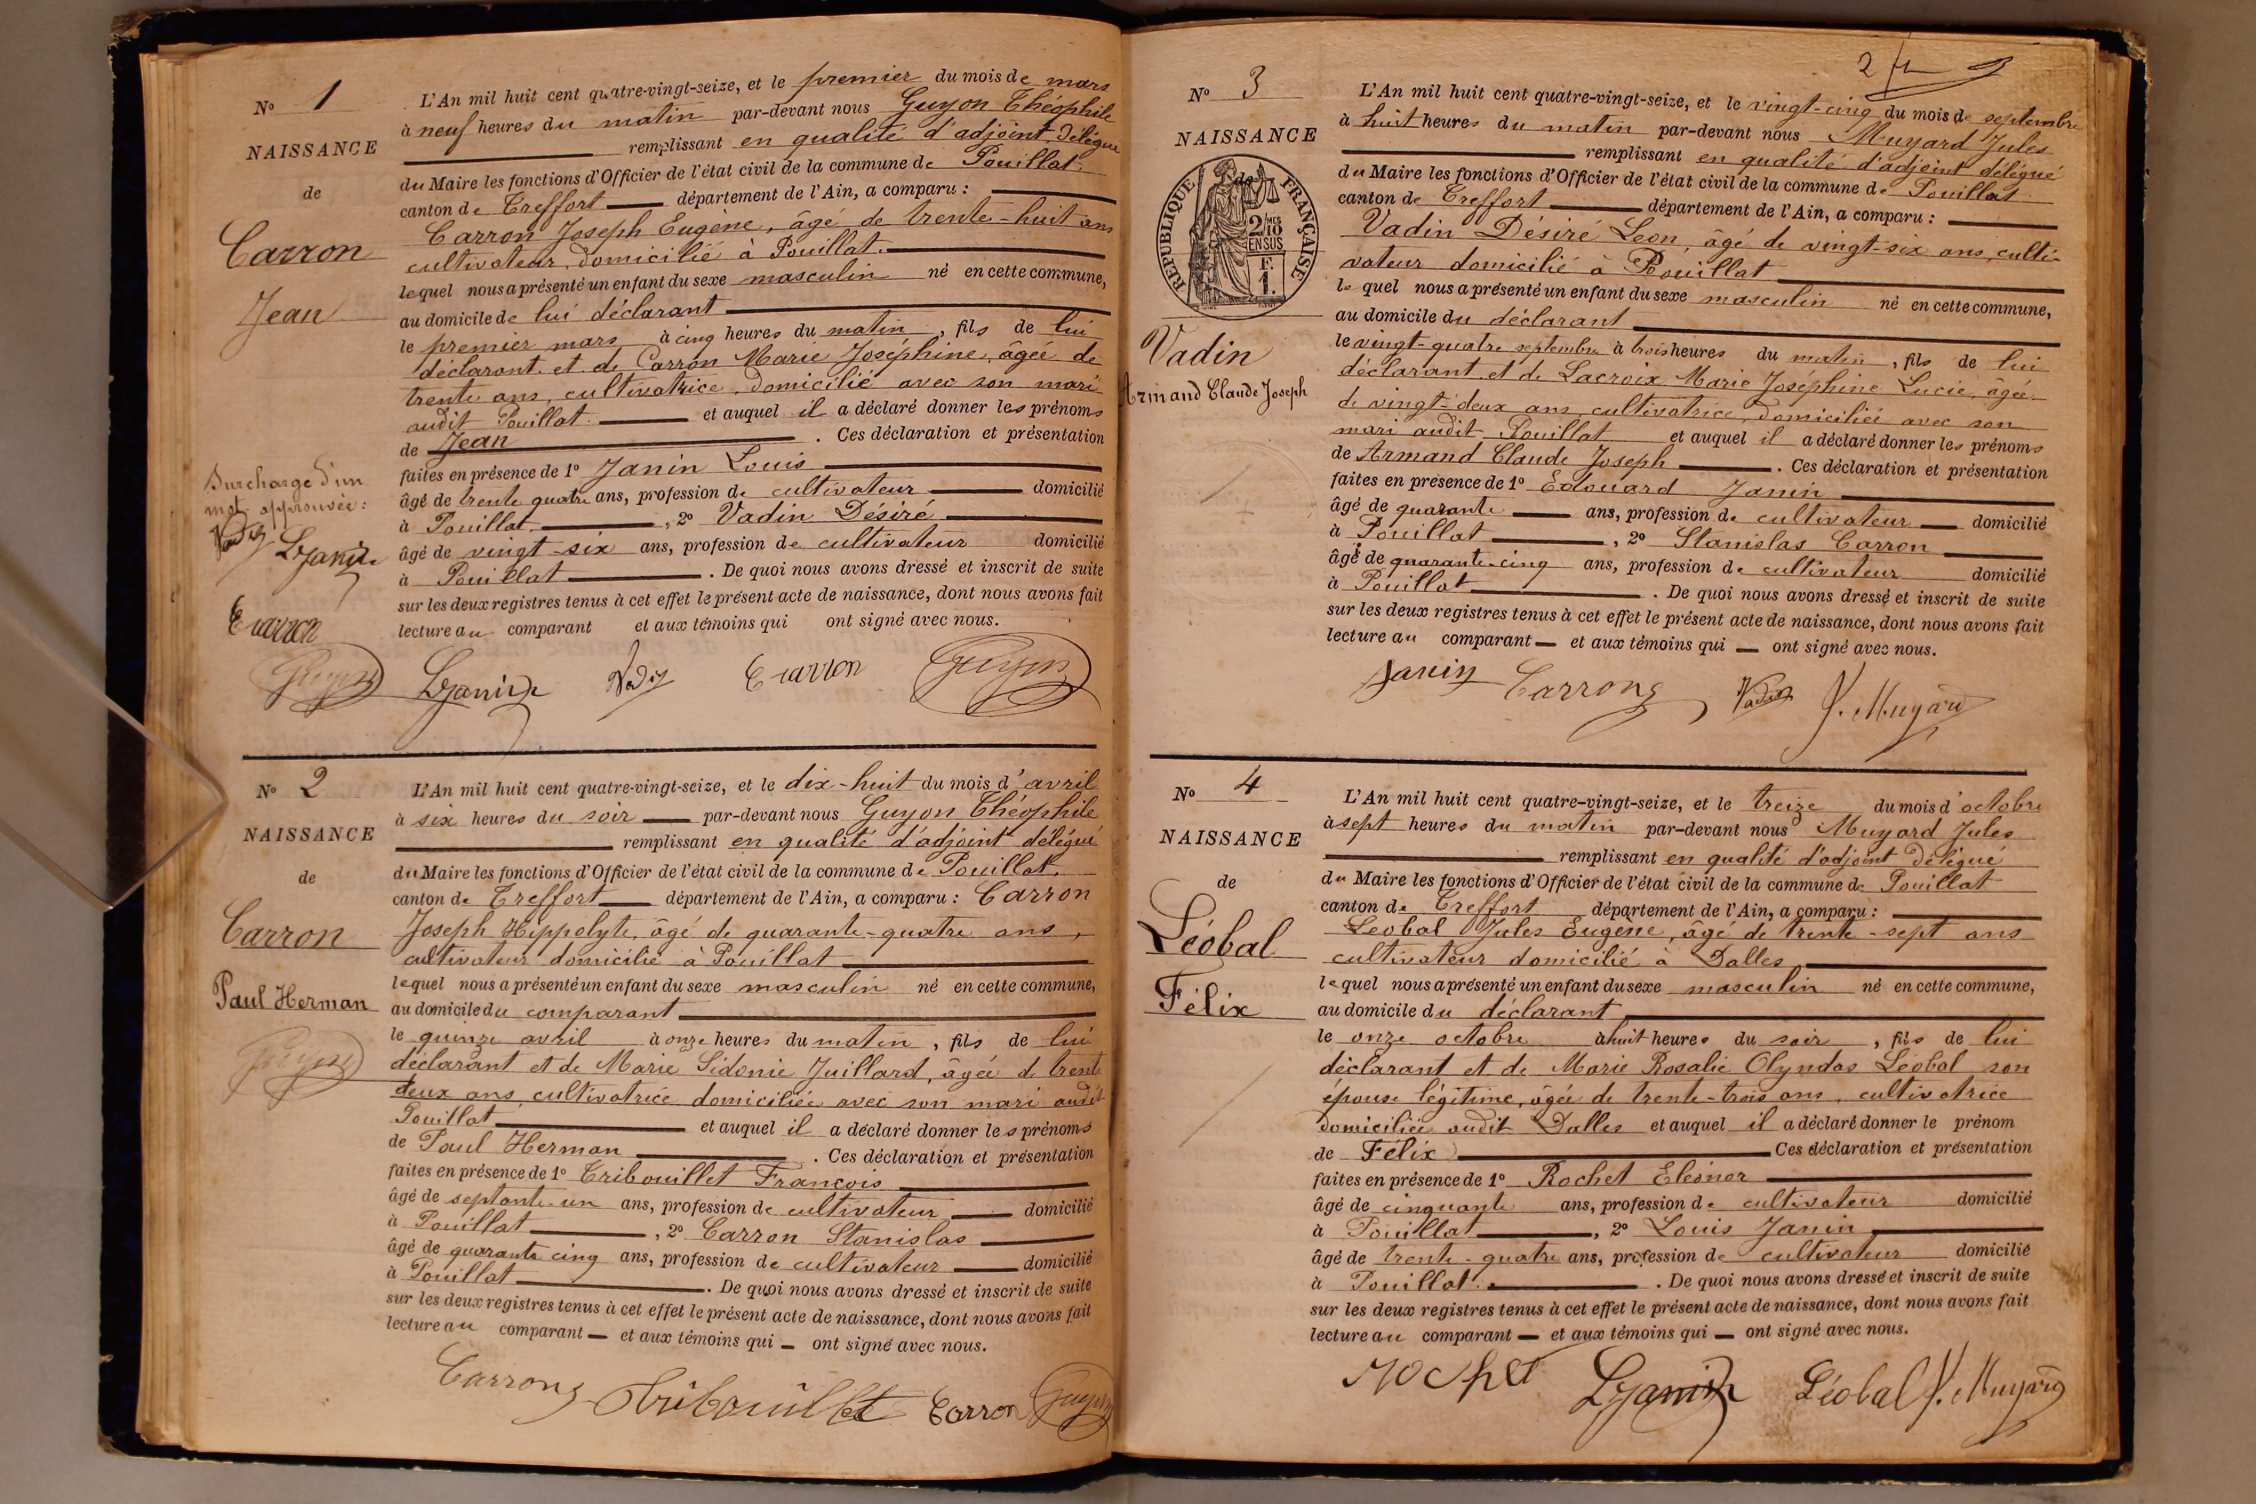 N° 1
NAISSANCE
de
Carron
Jean
Surcharge d'un
mot approuvée:
Vadin
L Janin
E Carron
Guyon
L'An mil huit cent quatre-vingt-seize, et le premier du mois de mars
à neuf heures du matin par-devant nous Guyon Théophile
remplissant en qualité d'adjoint délégué
du Maire les fonctions d'Officier de l'état civil de la commune de Pouillat.
canton de Treffort département de l'Ain, a comparu :
Carron Joseph Eugène, âgé de trente-huit ans
cultivateur, domicilié à Pouillat.
lequel nous a présenté un enfant du sexe masculin né en cette commune,
au domicile de lui déclarant
le premier mars à cinq heures du matin, fils de lui
déclarant et de Carron Marie Joséphine, âgée de
trente ans, cultivatrice, domicilié avec son mari
audit Pouillat. et auquel il a déclaré donner les prénoms
de Jean. Ces déclaration et présentation
faites en présence de 1° Janin Louis
âgé de trente quatre ans, profession de cultivateur domicilié
à Pouillat, 2° Vadin Désiré
âgé de vingt-six ans, profession de cultivateur domicilié
à Pouillat. De quoi nous avons dressé et inscrit de suite
sur les deux registres tenus à cet effet le présent acte de naissance, dont nous avons fait
lecture au comparant et aux témoins qui ont signé avec nous.
L Janin Vadin E Carron Guyon
N° 2
NAISSANCE
de
Carron
Paul Herman
Guyon
L'An mil huit cent quatre-vingt-seize, et le dix-huit du mois d'avril
à six heures du soir par-devant nous Guyon Théophile
remplissant en qualité d'adjoint délégué
du Maire les fonctions d'Officier de l'état civil de la commune de Pouillat.
canton de Treffort département de l'Ain, a comparu : Carron
Joseph Hippolyte, âgé de quarante-quatre ans,
cultivateur domicilié à Pouillat
lequel nous a présenté un enfant du sexe masculin né en cette commune,
au domicile du comparant
le quinze avril à onze heures du matin, fils de lui
déclarant et de Marie Sidonie Juillard, âgée de trente
deux ans, cultivatrice domiciliée avec son mari audit
Pouillat et auquel il a déclaré donner les prénoms
de Paul Herman. Ces déclaration et présentation
faites en présence de 1° Tribouillet François
âgé de septante-un ans, profession de cultivateur domicilié
à Pouillat, 2° Carron Stanislas
âgé de quarante cinq ans, profession de cultivateur domicilié
à Pouillat. De quoi nous avons dressé et inscrit de suite
sur les deux registres tenus à cet effet le présent acte de naissance, dont nous avons fait
lecture au comparant et aux témoins qui ont signé avec nous.
Carron Tribouillet Carron Guyon
2
N° 3
NAISSANCE
de
RÉPUBLIQUE FRANÇAISE
2/10 MES
EN SUS
F.
1.
Vadin
Armand Claude Joseph
L'An mil huit cent quatre-vingt-seize, et le vingt-cinq du mois de septembre
à huit heures du matin par-devant nous Muyard Jules
remplissant en qualité d'adjoint délégué
du Maire les fonctions d'Officier de l'état civil de la commune de Pouillat
canton de Treffort département de l'Ain, a comparu :
Vadin Désiré Léon, âgé de vingt-six ans, culti-
vateur domicilié à Pouillat
lequel nous a présenté un enfant du sexe masculin né en cette commune,
au domicile du déclarant
le vingt-quatre septembre à trois heures du matin, fils de lui
déclarant et de Lacroix Marie Joséphine Lucie, âgée
de vingt-deux ans, cultivatrice, domiciliée avec son
mari audit Pouillat et auquel il a déclaré donner les prénoms
de Armand Claude Joseph. Ces déclaration et présentation
faites en présence de 1° Edouard Janin
âgé de quarante ans, profession de cultivateur domicilié
à Pouillat, 2° Stanislas Carron
âgé de quarante-cinq ans, profession de cultivateur domicilié
à Pouillat. De quoi nous avons dressé et inscrit de suite
sur les deux registres tenus à cet effet le présent acte de naissance, dont nous avons fait
lecture au comparant et aux témoins qui ont signé avec nous.
Janin Carron Vadin J. Muyard
N° 4
NAISSANCE
de
Léobal
Félix
L'An mil huit cent quatre-vingt-seize, et le treize du mois d'octobre
à sept heures du matin par-devant nous Muyard Jules
remplissant en qualité d'adjoint délégué
du Maire les fonctions d'Officier de l'état civil de la commune de Pouillat
canton de Treffort département de l'Ain, a comparu :
Léobal Jules Eugène, âgé de trente-sept ans
cultivateur domicilié à Dalles
lequel nous a présenté un enfant du sexe masculin né en cette commune,
au domicile du déclarant
le onze octobre à huit heures du soir, fils de lui
déclarant et de Marie Rosalie Olyndas Léobal son
épouse légitime, âgée de trente-trois ans, cultivatrice
domiciliée audit Dalles et auquel il a déclaré donner le prénom
de Félix Ces déclaration et présentation
faites en présence de 1° Rochet Eléonor
âgé de cinquante ans, profession de cultivateur domicilié
à Pouillat, 2° Louis Janin
âgé de trente-quatre ans, profession de cultivateur domicilié
à Pouillat. De quoi nous avons dressé et inscrit de suite
sur les deux registres tenus à cet effet le présent acte de naissance, dont nous avons fait
lecture au comparant et aux témoins qui ont signé avec nous.
Rochet L Janin Léobal J. Muyard